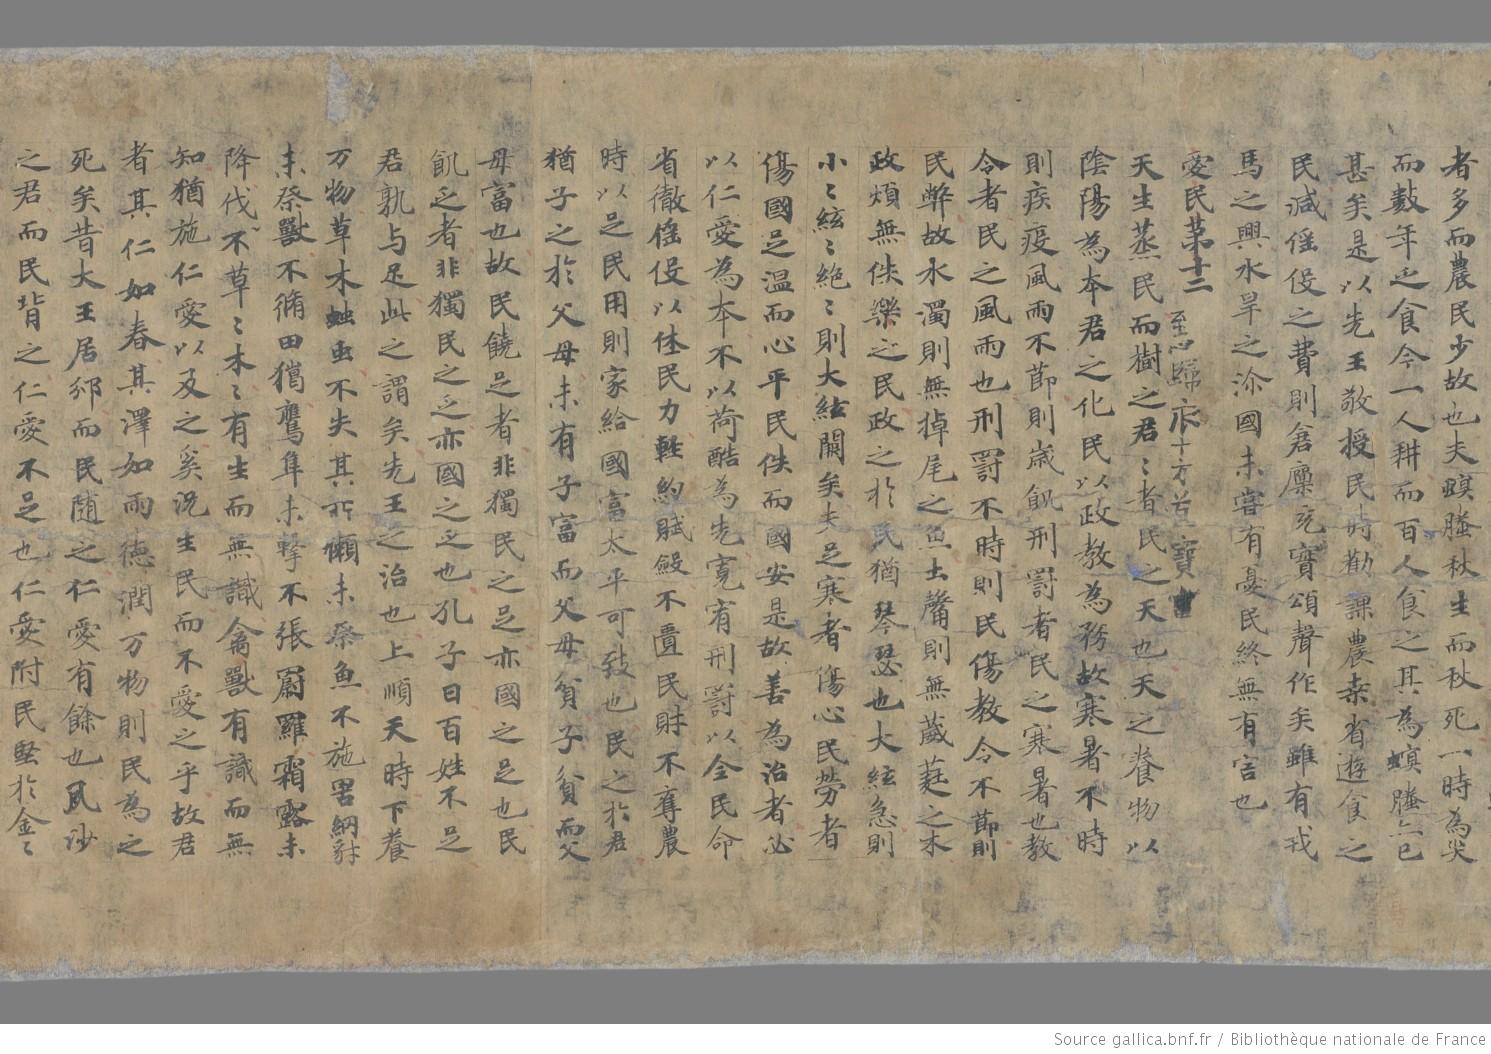 者多而農民少故也夫螟螣秋生而秋死一時為灾
而數年乏食今一人耕而百人食之其為螟螣亦已
甚矣是以先王敬授民時勸課農桒省遊食之
民減傜伇之費則倉廩充實頌聲作矣雖有戎
馬之興水旱之沴國未甞有憂民終無有害也
愛民第十二 至心歸 依十方 寶
天生蒸民而樹之君〻者民之天也天之養物以
陰陽為本君之化民以政教為務故寒暑不時
則疾疫風雨不莭則歳飢刑罸者民之寒暑也教
令者民之風雨也刑罸不時則民傷教令不莭則
民弊故水濁則無掉尾之魚土墝則無葳蕤之木
政煩無佚樂之民政之於民猶琴瑟也大絃急則
小〻絃〻絶〻則大絃闕矣夫足寒者傷心民勞者
傷國足温而心平民佚而國安是故善為治者必
以仁愛為本不以苛酷為先寛宥刑罸以全民命
省徹傜伇以休民力軽約賦斂不匱民財不奪農
時以足民用則家給國富太平可致也民之於君
猶子之於父母未有子富而父母貧子貧而父
母富也故民饒足者非獨民之足亦國之足也民
飢乏者非獨民之乏亦國之乏也孔子曰百姓不足
君孰与足此之謂矣先王之治也上順天時下養
万物草木蚰虫不失其所獺未祭魚不施罟網豺
未祭獸不脩田獵鷹隼未撃不張罻羅霜露未
降伐不草〻木〻有生而無識禽獸有識而無
知猶施仁愛以及之奚況生民而不愛之乎故君
者其仁如春其澤如雨徳潤万物則民為之
死矣昔大王居邠而民随之仁愛有餘也夙沙
之君而民背之仁愛不足也仁愛附民堅於金〻
Source gallica.bnf.fr / Bibliothèque nationale de France